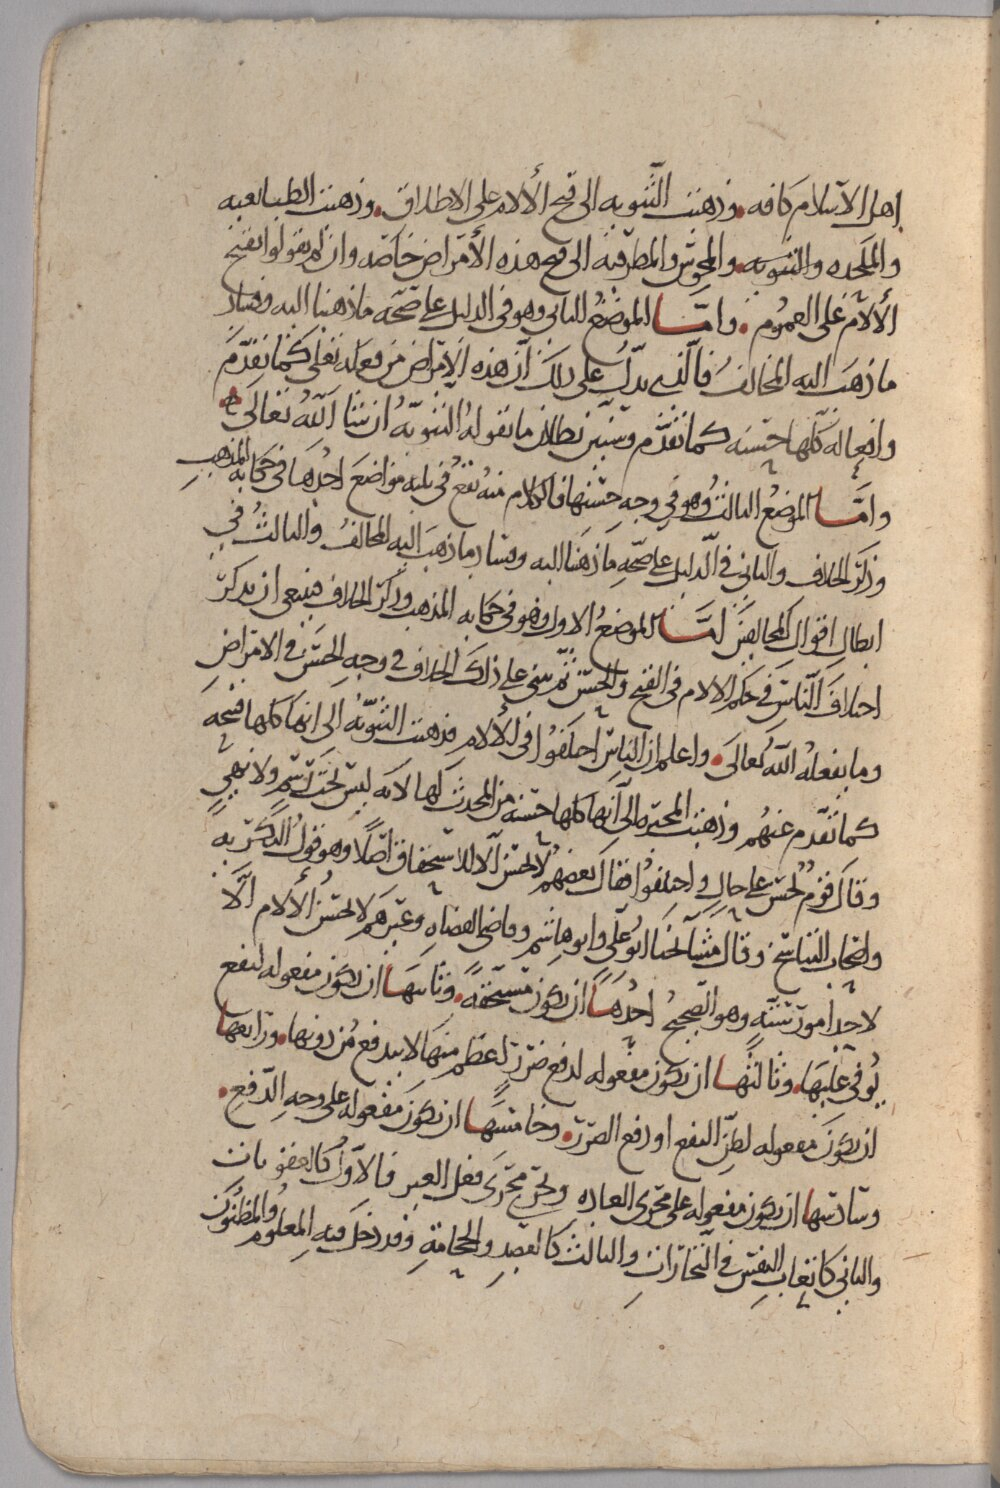 اهل الاسلام كافه. وذهبت الثنويه الى قبح الألام على الاطلاق. وذهبت الطبايعيه
والملحده والثنويه. والمجوس والمطرفيه الى قبح هذه الأمراض خاصه وان لم يقولوا بقبح
الألآم على العموم. وامّا الموضع الثاني وهو في الدليل على صحّه ما ذهبنا اليه وفساد
ما ذهب اليه المخالف فالّذي يدلّ على ذلك أنّ هذه الامراض من فعله تعلى كما تقدّم
وافعاله كلّها حسنه كما تقدّم وسنبيّن بطلان ما تقوله الثنويّه ان شا اللّه تعالى
وامّا الموضع الثالث وهو في وجه حسنها فالكلام منه يقع في ثلثه مواضع احدها في حكايه المذهب
وذكر الخلاف والثاني في الدليل على صحّه ما ذهبنا اليه وفساد ما ذهب اليه المخالف والثالث في
ابطال اقوال المخالفين امّا الموضع الاول وهو في حكايه المذهب وذكر الخلاف فينبغي ان نذكر
اختلاف الناس في حكم الالام في القبح والحسن ثم نبني على ذلك الخلاف في وجه الحسن في الامراض
وما يفعله اللّه تعالى. واعلم ان الناس اختلفوا في الألام فذهبت الثنويّه الى انها كلها قبيحه
كما تقدّم عنهم وذهبت المجبره الى أنها كلها حسنه من المحدث لها لانه ليس تحت رسم ولا نهي
وقال قوم تحسن على حال واختلفوا فقال بعضهم لا تحسن الا للاستحقاق اصلًا وهو قول البكريه
واصحاب التناسخ وقال مشآيخنا ابو علي وابو هاشم وقاضي القضاه وغيرهم لا تحسن الألام الّا
لاحد امور ستّه وهو الصحيح احدها ان تكون مستحقّه. وثانيها ان تكون مفعوله لنفع
يُوفي عليها. وثالثها ان تكون مفعوله لدفع ضرر اعظم منها لا يندفع من دونها. ورابعها
ان تكون مفعوله لظن النفع او دفع الضرر. وخامسها ان تكون مفعوله على وجه الدفع.
وسادسها ان تكون مفعوله على مجرى العاده وتجري مجرى فعل الغير فالأوّل كالعقوبات
والثاني كاتعاب النفس في التجارات والثالث كالفصد والحجامة وقد دخل فيه المعلوم والمظنون